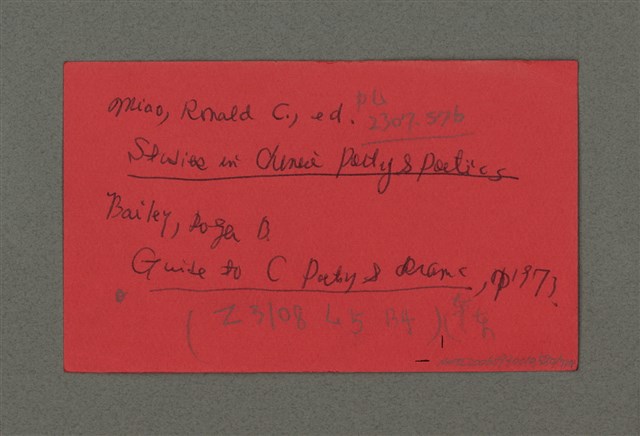 Miao, Ronald C., ed. PL
2307.S76
Studies in Chinese Poetry & Poetics
Bailey, Roger B.
Guide to C Poetry & Drama, 1973.
(Z3108 L5 B4)